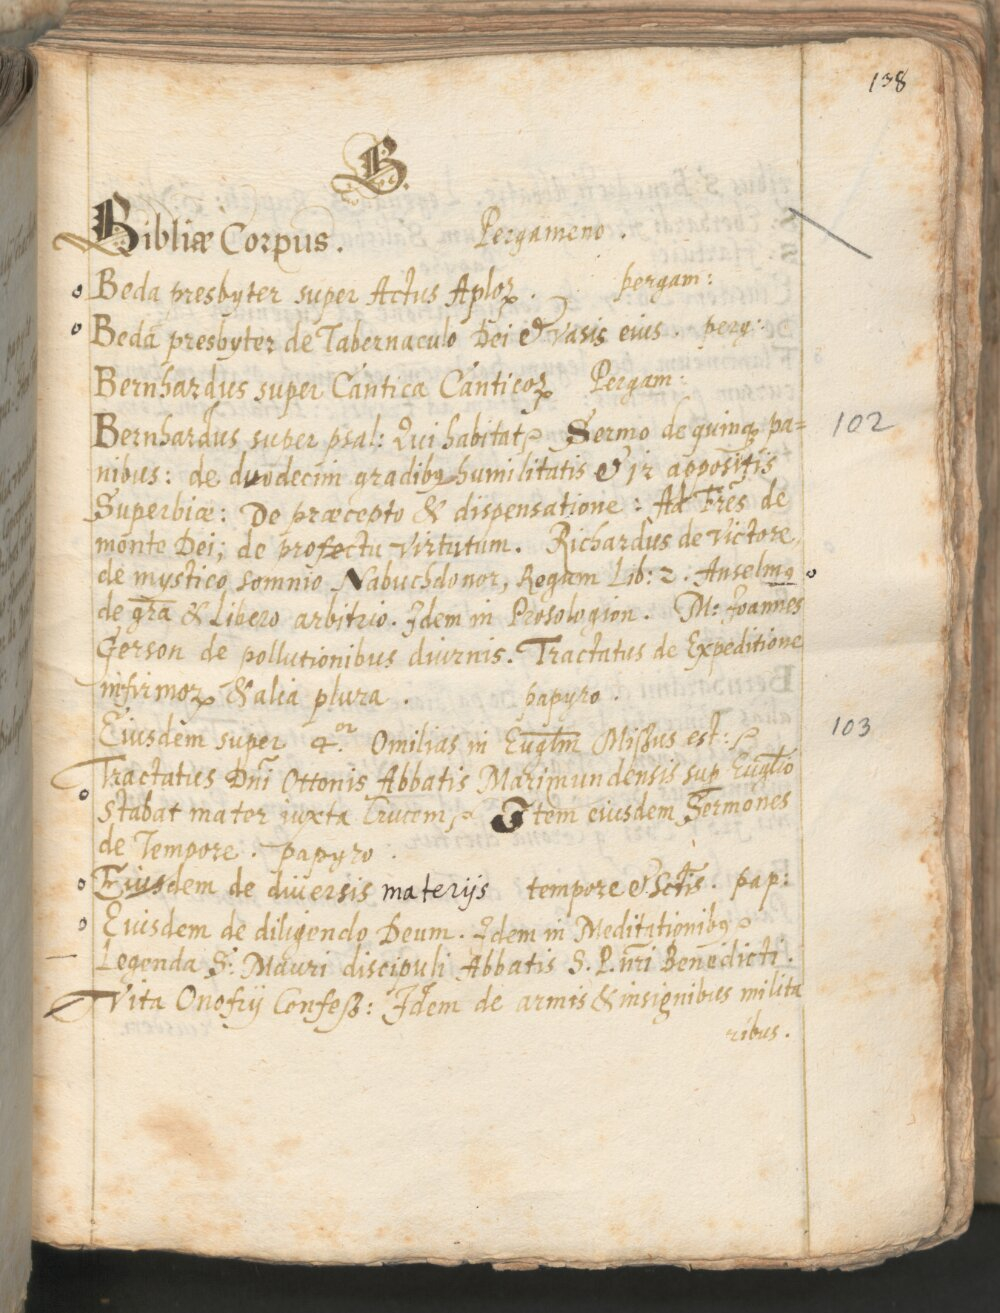 138
B.
Bibliæ Corpus. Pergameno.
Beda presbyter super Actus Aploꝝ. pergam:
Beda presbyter de Tabernaculo Dei & Vasis eius. perg:
Bernhardus super Cantica Canticoꝝ Pergam:
Bernhardus super psal: Qui habitat Sermo de quinqꝫ pa= 102
nibus: de duodecim gradibꝫ humilitatis & 12 appositis
Superbiæ: De præcepto & dispensatione: Ad Frēs de
monte Dei; de profectu virtutum. Richardus de victore
de mystico somnio Nabuchdonor, Regum Lib: 2. Anselmꝫ
de gr̄a & Libero arbitrio. Idem in Prosologion. M: Joannes
Gerson de pollutionibus diurnis. Tractatus de Expeditione
infirmoꝝ & alia plura. papyro.
Eiusdem super 4.or Omilias in Euglm Mißus est: 103
Tractatus Dn̄i Ottonis Abbatis Marimundensis sup Euglio
stabat mater juxta Crucem Item eiusdem Sermones
de Tempore. papyro.
Eiusdem de diversis materijs tempore & Sctis. pap:
Eiusdem de diligendo Deum. Idem in Meditationibꝫ
Legenda S. Mauri discipuli Abbatis S. P. nr̄i Benedicti.
Vita Onofrij Confeß: Idem de armis & insignibus milita
ribus.